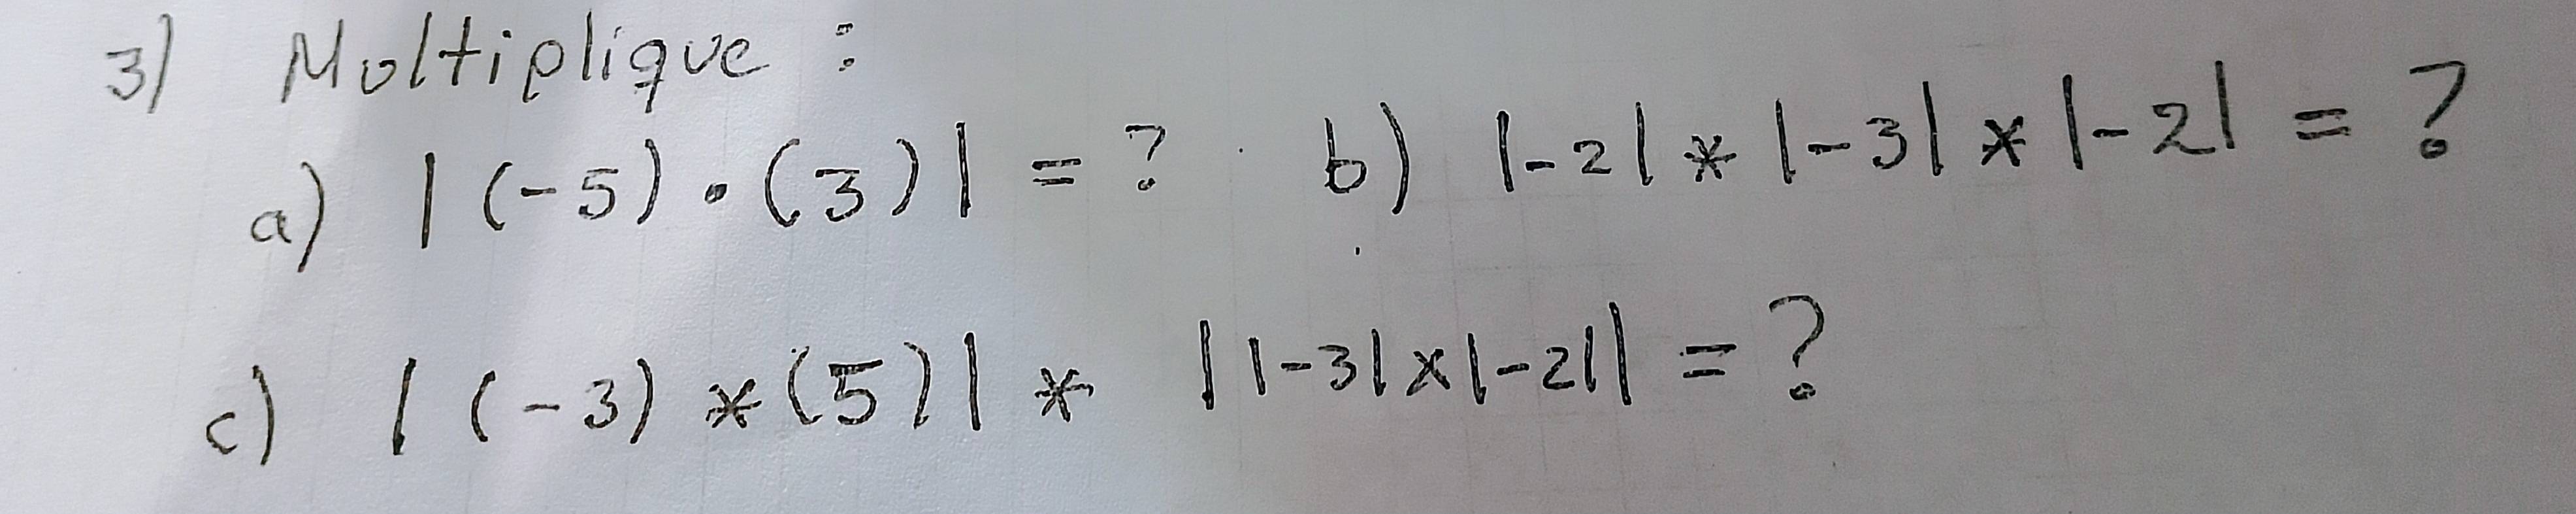 3) Multiplique :
a) |(-5) • (3)| = ? b) |-2| * |-3| * |-2| = ?
c) |(-3) * (5)| * ||-3|x|-2|| = ?